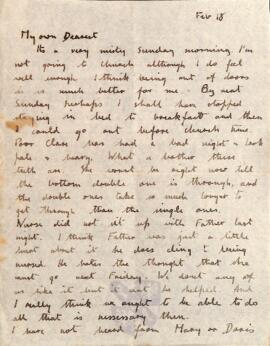 Feb 18
My own Dearest
Its a very misty Sunday morning. I'm
not going to church although I do feel
well enough I think being out of doors
is is much better for me. By next
Sunday perhaps I shall have stopped
staying in bed to breakfast and then
I could go out before church time
Poor Clare has had a bad night & look
pale & heavy. What a bother these
teeth are. She wont be right now till
the bottom double one is through, and
the double ones take so much longer to
get through than the single ones.
Nurse did not sit up with Father last
night. I think Father was just a little
hurt about it he does cling to being
nursed. He hates the thought that she
must go next Friday. We dont any of
us like it but it cant be helped. And
I really think we ought to be able to do
all that is necessary then.
I have not heard from Mary or Davis